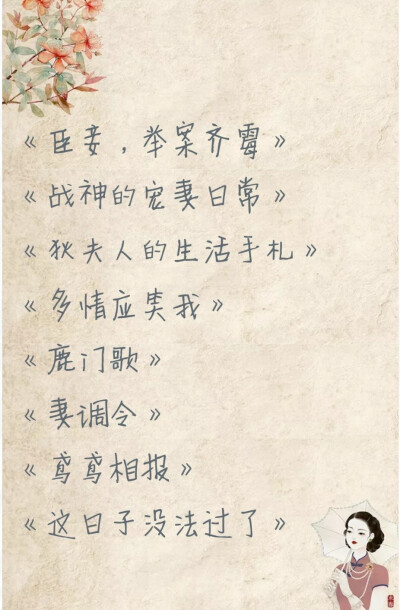 《臣妾，举案齐霉》
《战神的宠妻日常》
《狄夫人的生活手札》
《多情应笑我》
《鹿门歌》
《妻调令》
《鸢鸢相报》
《这日子没法过了》